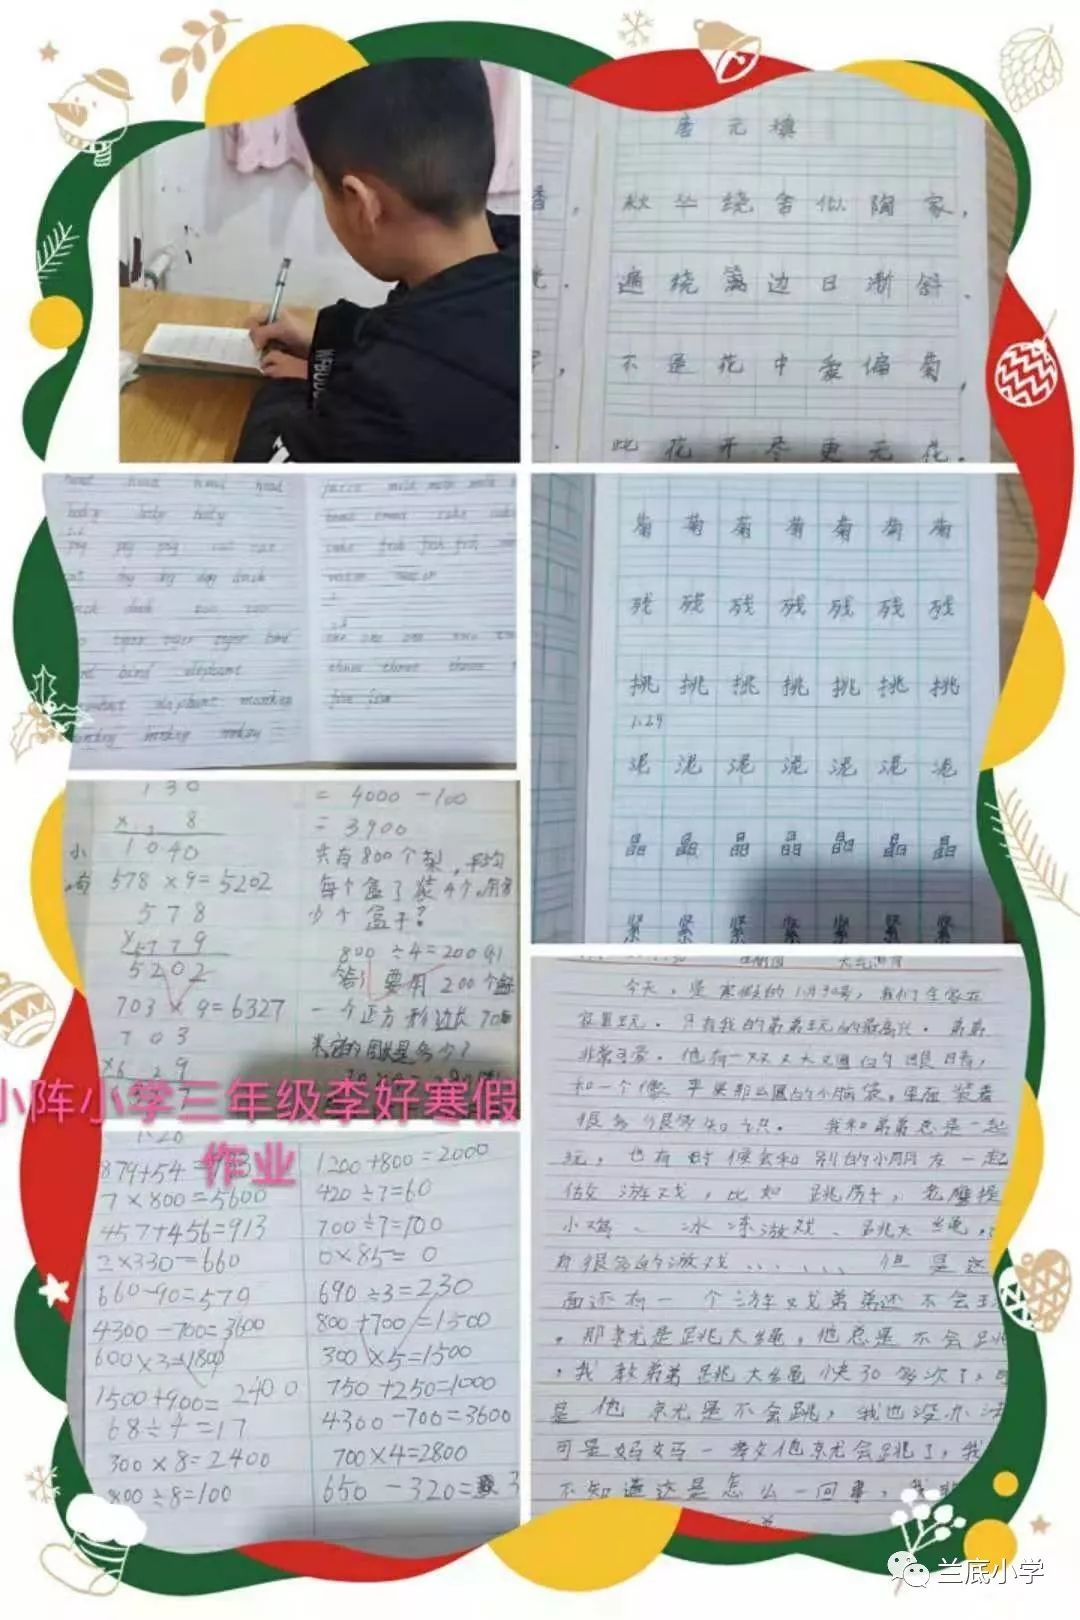 唐 元 稹
秋 丛 绕 舍 似 陶 家，
遍 绕 篱 边 日 渐 斜．
不 是 花 中 爱 偏 菊，
此 花 开 尽 更 无 花．
head head
body body body
pig pig pig
dog duck
duck zoo zoo
tiger tiger tiger
bird elephant
elephant monkey
monkey monkey monkey
milk milk milk
cake
cake fish fish fish
water water
one one
three three three
four four
菊 菊 菊 菊 菊 菊 菊
残 残 残 残 残 残 残
挑 挑 挑 挑 挑 挑 挑
1.29
泥 泥 泥 泥 泥 泥 泥
晶 晶 晶 晶 晶 晶 晶
紧 紧 紧 紧 紧 紧 紧
130
× 8
1040
578×9=5202
578
× 9
5202
703×9=6327
703
× 9
=4000-100
=3900
共有800个梨，平均
每个盒子装4个，需要
少个盒子？
800÷4=200(个)
答：要用200个盒
一个正方形边长70
米它的周长是多少？
小阵小学三年级李好寒假
作业
1.20
879+54=
7×800=5600
457+456=913
2×330=660
660-90=570
4300-700=3600
600×3=1800
1500+900=2400
68÷4=17
300×8=2400
800÷8=100
1200+800=2000
420÷7=60
700÷7=100
0×85=0
690÷3=230
800+700=1500
300×5=1500
750+250=1000
4300-700=3600
700×4=2800
650-320=
今天，是寒假的1月30号，我们全家在
家里玩．只有我的弟弟玩的最高兴．弟弟
非常可爱．他有一双又大又圆的眼睛，
和一个像苹果那么圆的小脑袋，里面装着
很多很多知识．我和弟弟总是一起
玩，也有时候会和别的小朋友一起
做游戏，比如跳房子，老鹰捉
小鸡、冰冻游戏、跳大绳，还
有很多的游戏、、、、、、但是这
面还有一个游戏弟弟还不会玩
．那就是跳大绳，他总是不会跳
．我教弟弟跳大绳快30多次了，可
是他就是不会跳，我也没办法
可是妈妈一教他就会跳了，我
不知道这是怎么一回事，我
兰底小学